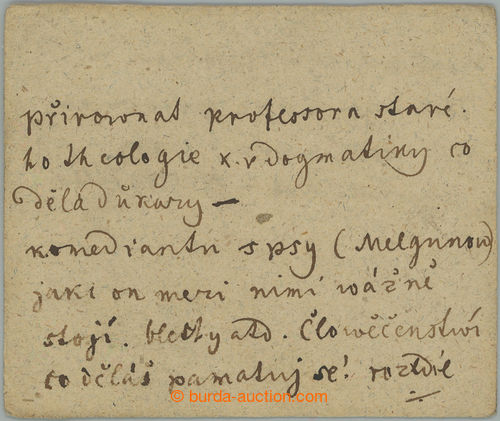 přirownat professora staré-
ho theologie k. v dogmatiky co
dělá důkazy —
komediantu s psy (Melgunow)
jak on mezi nimi wážně
stojí. blechy atd. Člowěčenstwí
co děláš pamatuj se! rozdíl
© burda-auction.com